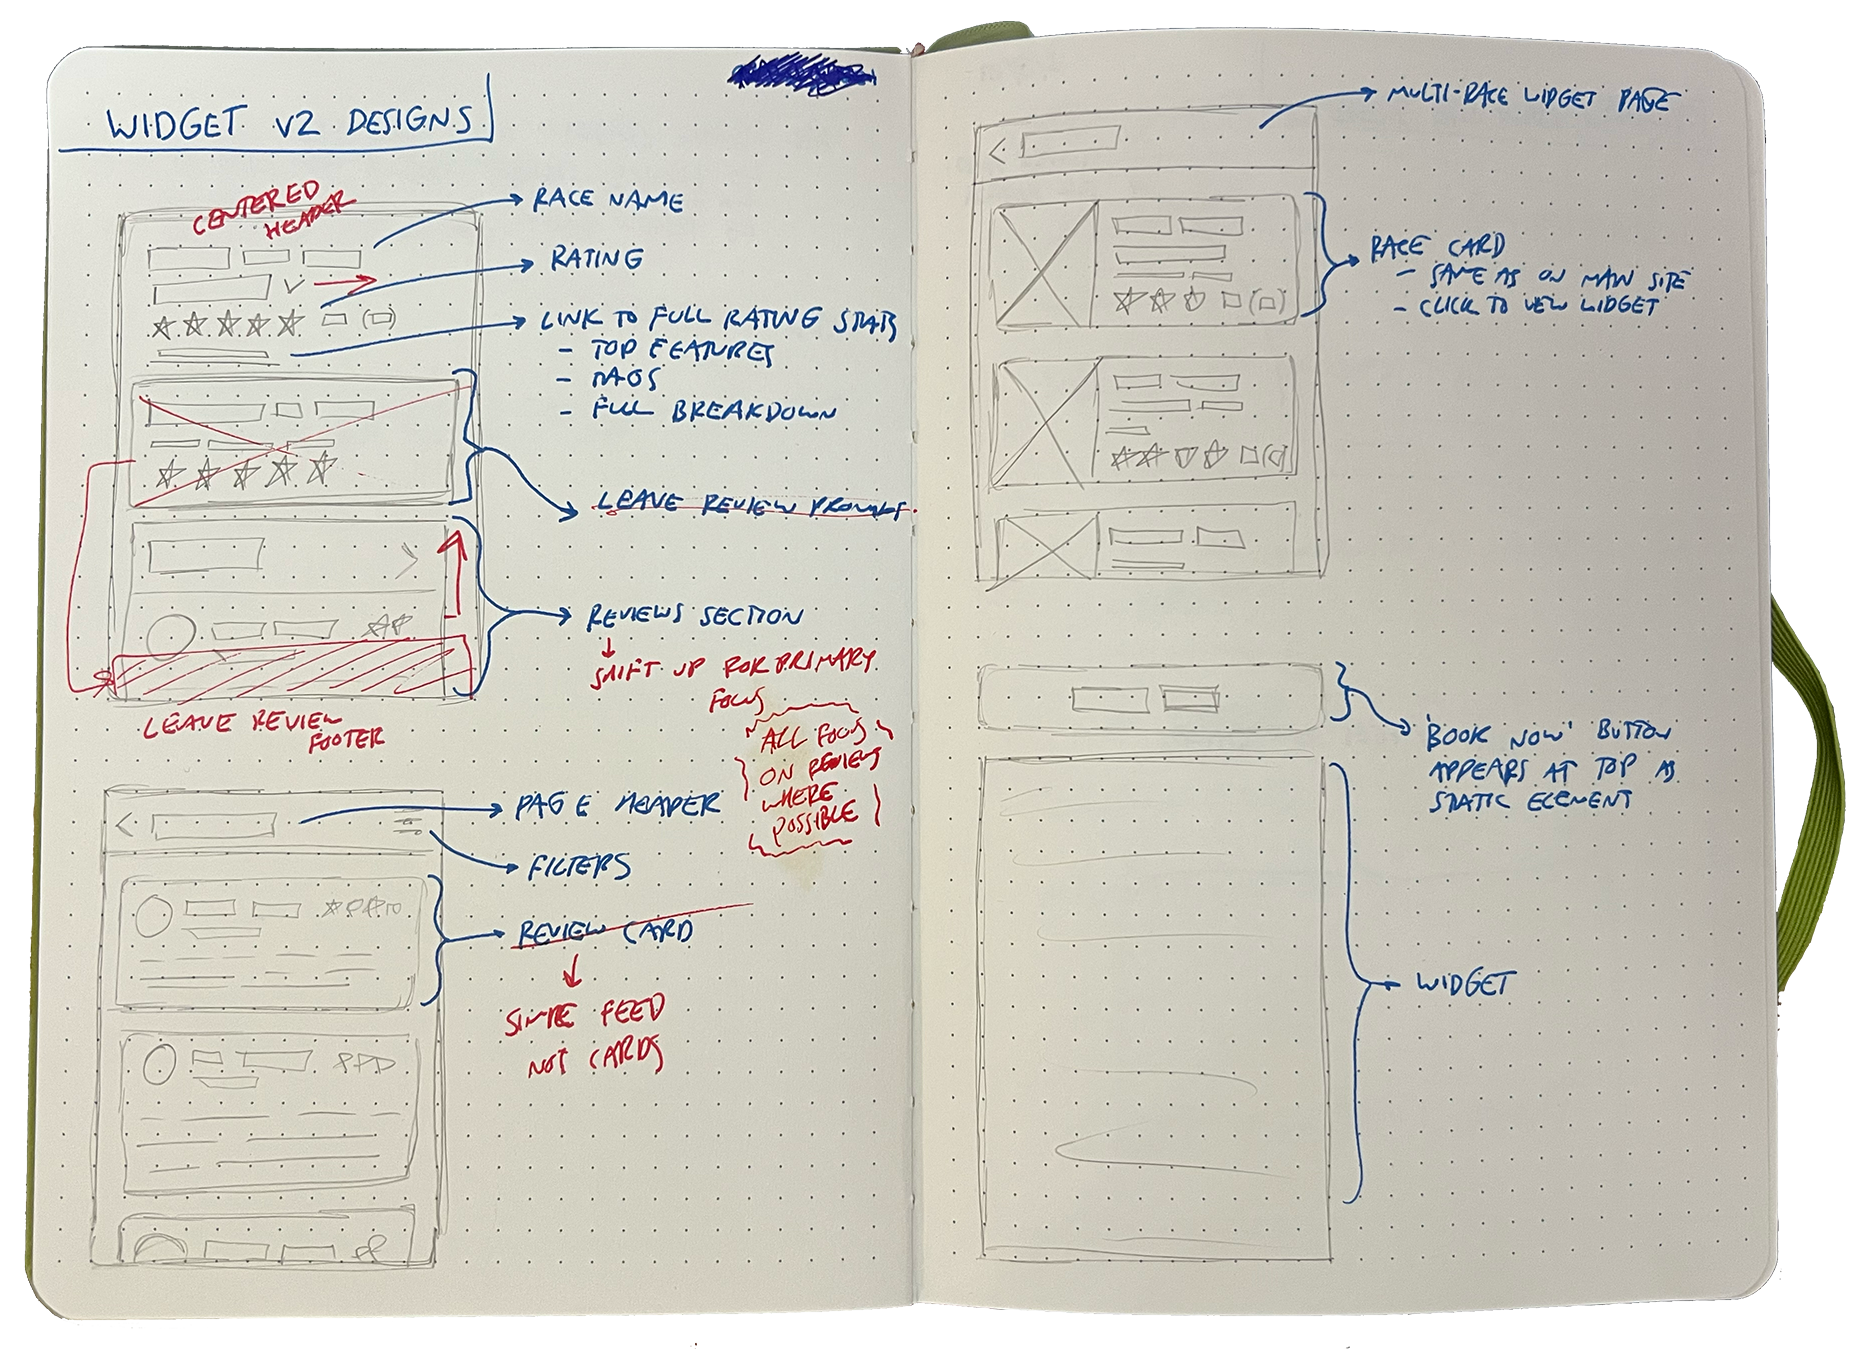 WIDGET V2 DESIGNS
CENTERED
HEADER
RACE NAME
RATING
LINK TO FULL RATING STATS
- TOP FEATURES
- FAQS
- FULL BREAKDOWN
LEAVE REVIEW PROMPT
REVIEWS SECTION
SHIFT UP FOR PRIMARY
FOCUS
LEAVE REVIEW
FOOTER
ALL FOCUS
ON REVIEWS
WHERE
POSSIBLE
PAGE HEADER
FILTERS
REVIEW CARD
SIMPLE FEED
NOT CARDS
MULTI-RACE WIDGET PAGE
RACE CARD
- SAME AS ON MAIN SITE
- CLICK TO VIEW WIDGET
'BOOK NOW' BUTTON
APPEARS AT TOP AS
STATIC ELEMENT
WIDGET